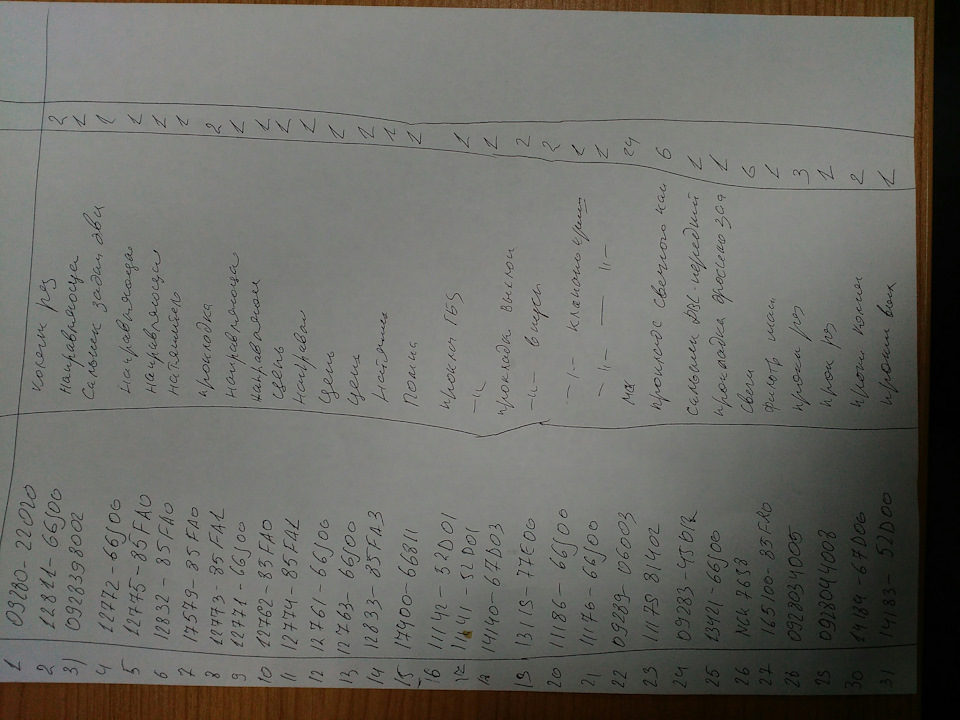 1 09280-22020 колечки рез 2
2 12811-66J00 направляюща 1
3) 0928398002 Сальник задн дви 1
4 12772-66J00 направляюща 1
5 12775-85FA0 направляющая 1
6 12832-85FA0 натяжитель 1
7 17579-85FA0 прокладка 2
8 12773-85FA1 направляюща 1
9 12771-66J00 направляющ 1
10 12762-85FA0 цепь 1
11 12774-85FA1 направл 1
12 12761-66J00 цепь 1
13 12763-66J00 цепь 1
14 12833-85FA3 натяжи 1
15 17400-66811 Помпа 1
16 11142-52D01 проклад ГБЦ 1
17 11141-52D01 -"- 1
18 14140-67D03 прокладка выхлоп 2
19 13119-77E00 -"- впуск 2
20 11186-66J00 -"- клапанно крыш 1
21 11176-66J00 -"- — -"- 1
22 09289-06003 мск 24
23 11179 81402 прокладк свечного кол 6
24 09283-45012 сальник ДВС-передний 1
25 13421-66J00 прокладка дроссельно зол 1
26 NGK 7658 свеча 6
27 16510-85FA0 фильтр мал 1
28 0928034005 прокл рез 3
29 0928044008 прок рез 1
30 14184-67D00 прокл колен 2
31 14183-52D00 прокл вых 1